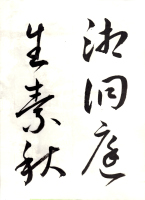 湘洞庭
生素秋